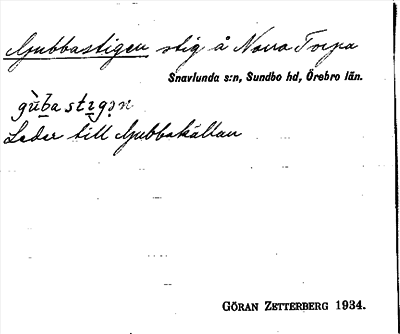 Gubbastigen stig å Norra Torpa
Snavlunda s:n, Sundbo hd, Örebro län.
gùba stıgən
Leder till Gubbakällan
GÖRAN ZETTERBERG 1934.